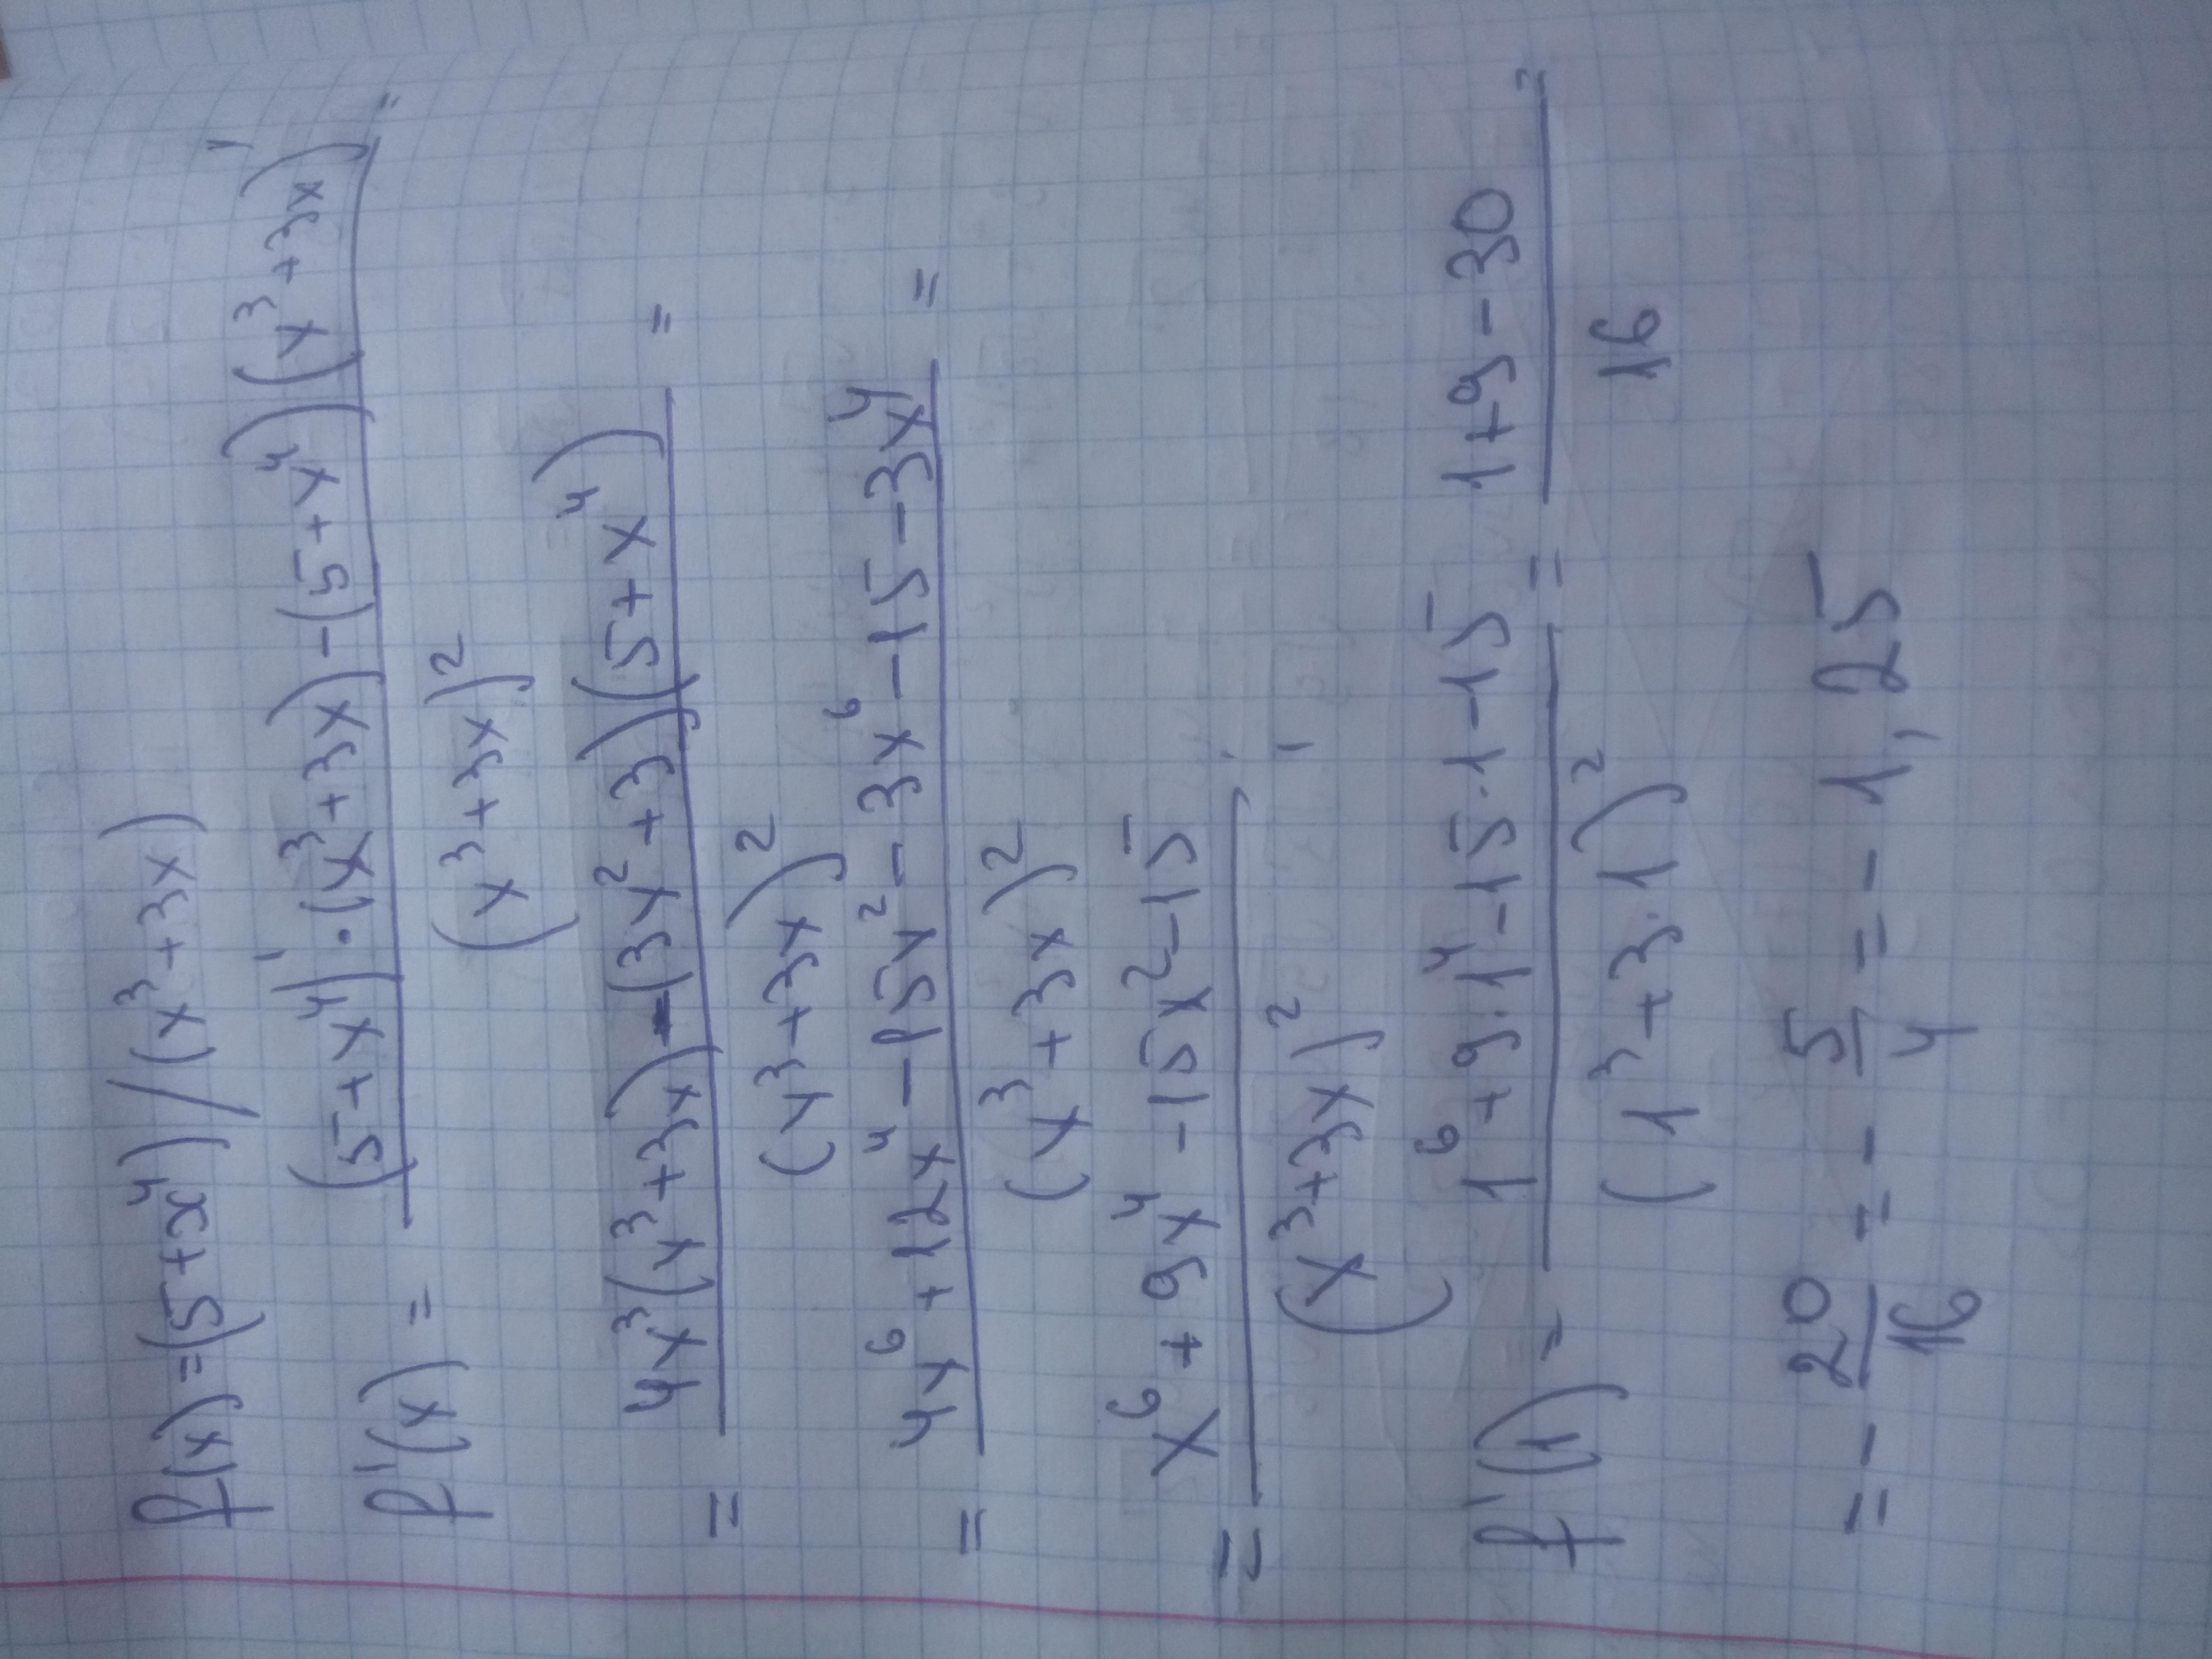 f(x) = (5+x⁴)/(x³+3x)
f'(x) = ((5+x⁴)'·(x³+3x)-(5+x⁴)(x³+3x)')/(x³+3x)² =
= (4x³(x³+3x)-(3x²+3)(5+x⁴))/(x³+3x)² =
= (4x⁶+12x⁴-15x²-3x⁶-15-3x⁴)/(x³+3x)² =
= (x⁶+9x⁴-15x²-15)/(x³+3x)²
f'(1) = (1⁶+9·1⁴-15·1-15)/(1³+3·1)² = (1+9-30)/16 =
= -20/16 = -5/4 = -1,25